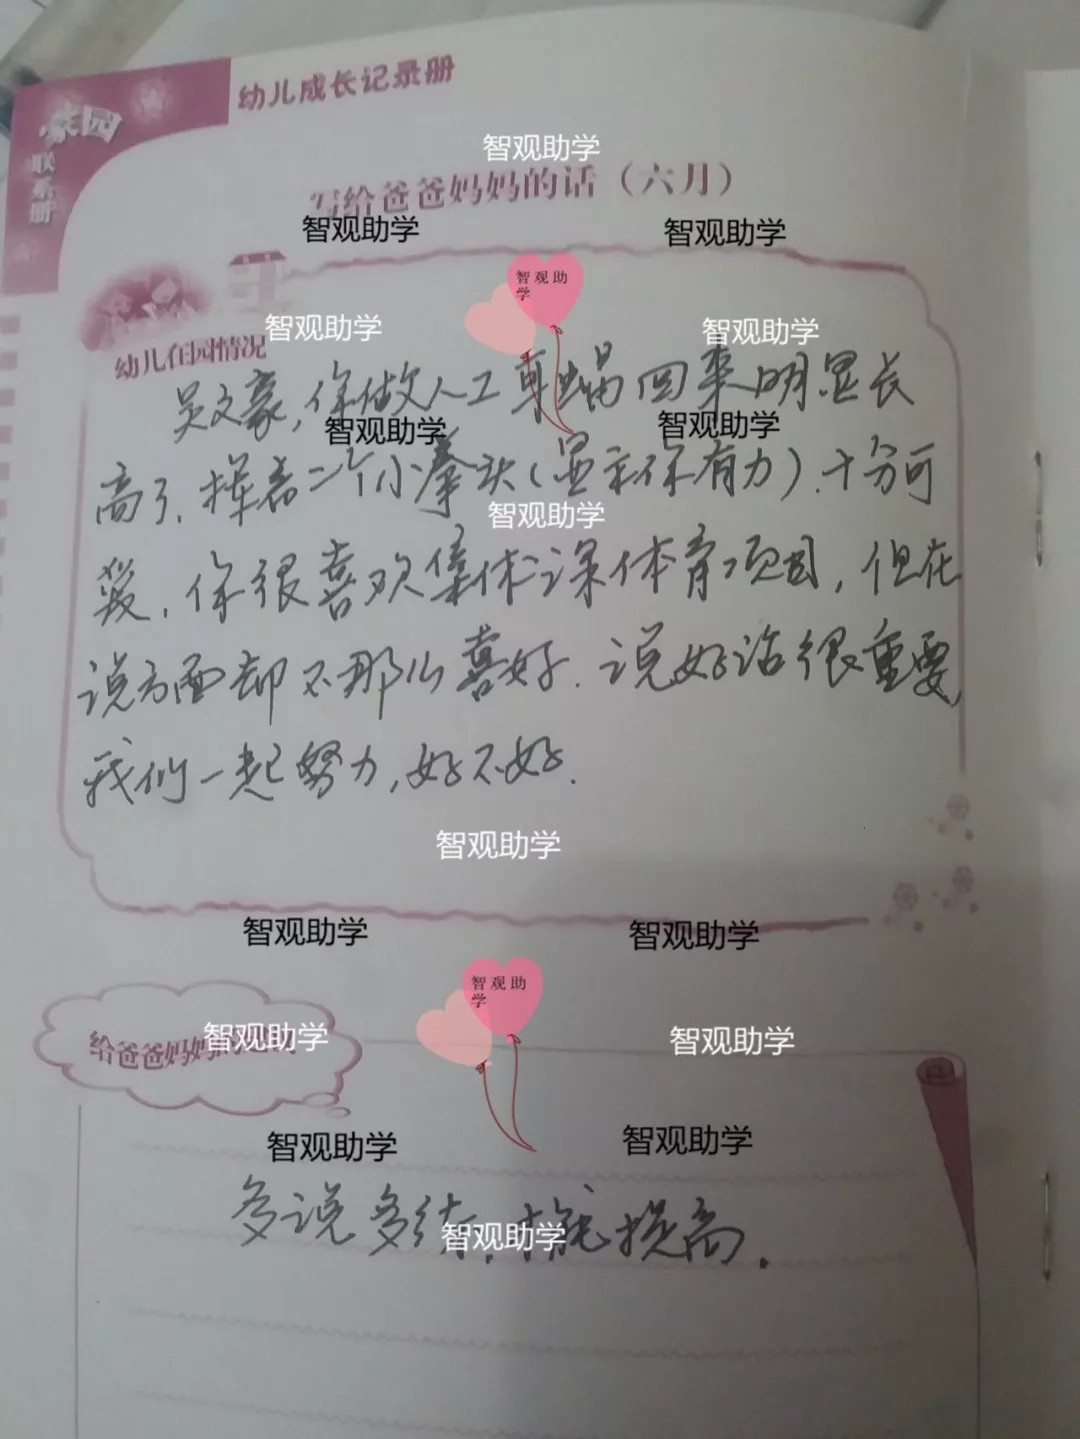 家园
联系册
幼儿成长记录册
智观助学
写给爸爸妈妈的话（六月）
智观助学
智观助学
智观助学
智观助学
智观助学
幼儿在园情况
吴文豪,你做人工耳蜗回来明显长
智观助学
智观助学
高了,挥着二个小拳头(显示你有力),十分可
智观助学
爱,你很喜欢集体课体育项目,但在
说方面却不那么喜好.说好话很重要,
我们一起努力,好不好.
智观助学
智观助学
智观助学
智观助学
给爸爸妈妈的
智观助学
智观助学
智观助学
智观助学
多说多练,才能提高.
智观助学